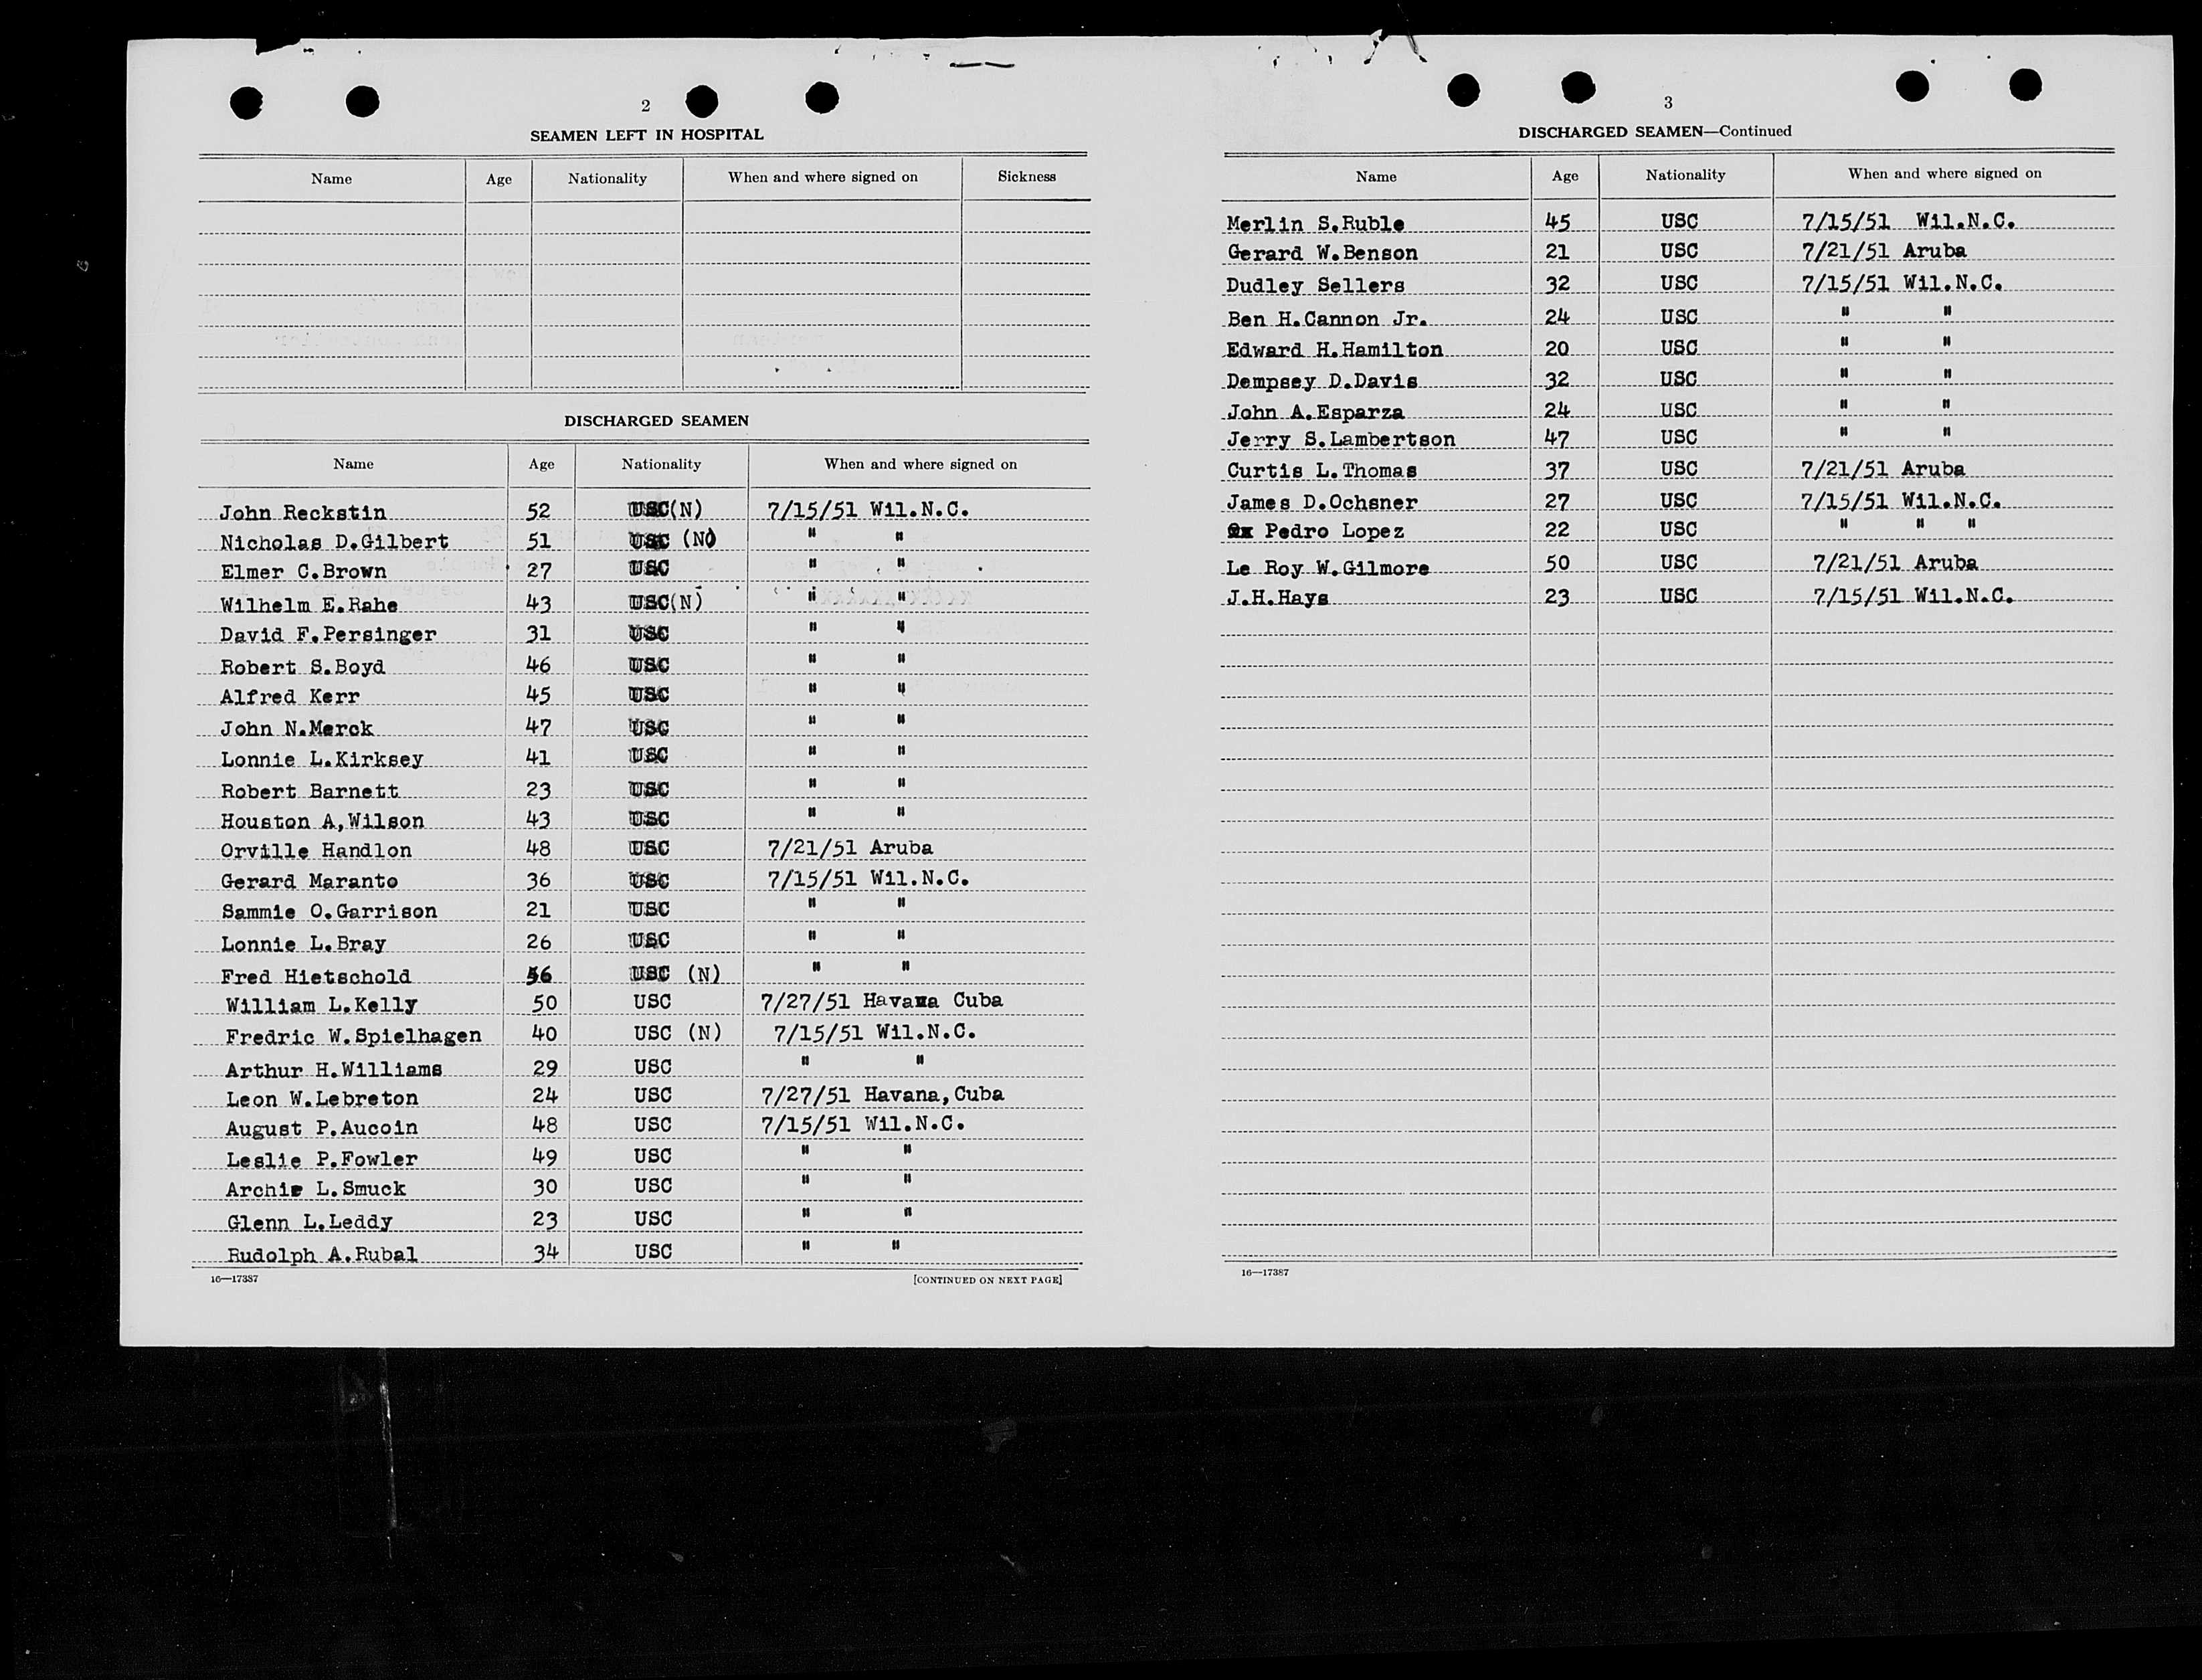 2
SEAMEN LEFT IN HOSPITAL
Name Age Nationality When and where signed on Sickness
DISCHARGED SEAMEN
Name Age Nationality When and where signed on
John Reckstin 52 USC(N) 7/15/51 Wil.N.C.
Nicholas D.Gilbert 51 USC (N) " "
Elmer C.Brown 27 USC " "
Wilhelm E.Rahe 43 USC(N) " "
David F.Persinger 31 USC " "
Robert S.Boyd 46 USC " "
Alfred Kerr 45 USC " "
John N.Merck 47 USC " "
Lonnie L.Kirksey 41 USC " "
Robert Barnett 23 USC " "
Houston A,Wilson 43 USC " "
Orville Handlon 48 USC 7/21/51 Aruba
Gerard Maranto 36 USC 7/15/51 Wil.N.C.
Sammie O.Garrison 21 USC " "
Lonnie L.Bray 26 USC " "
Fred Hietschold 56 USC (N) " "
William L.Kelly 50 USC 7/27/51 Havana Cuba
Fredric W.Spielhagen 40 USC (N) 7/15/51 Wil.N.C.
Arthur H.Williams 29 USC " "
Leon W.Lebreton 24 USC 7/27/51 Havana,Cuba
August P.Aucoin 48 USC 7/15/51 Wil.N.C.
Leslie P.Fowler 49 USC " "
Archie L.Smuck 30 USC " "
Glenn L.Leddy 23 USC " "
Rudolph A.Rubal 34 USC " "
16—17387 [CONTINUED ON NEXT PAGE]
3
DISCHARGED SEAMEN—Continued
Name Age Nationality When and where signed on
Merlin S.Ruble 45 USC 7/15/51 Wil.N.C.
Gerard W.Benson 21 USC 7/21/51 Aruba
Dudley Sellers 32 USC 7/15/51 Wil.N.C.
Ben H.Cannon Jr. 24 USC " "
Edward H.Hamilton 20 USC " "
Dempsey D.Davis 32 USC " "
John A.Esparza 24 USC " "
Jerry S.Lambertson 47 USC " "
Curtis L.Thomas 37 USC 7/21/51 Aruba
James D.Ochsner 27 USC 7/15/51 Wil.N.C.
Pedro Lopez 22 USC " " "
Le Roy W.Gilmore 50 USC 7/21/51 Aruba
J.H.Hays 23 USC 7/15/51 Wil.N.C.
16—17387